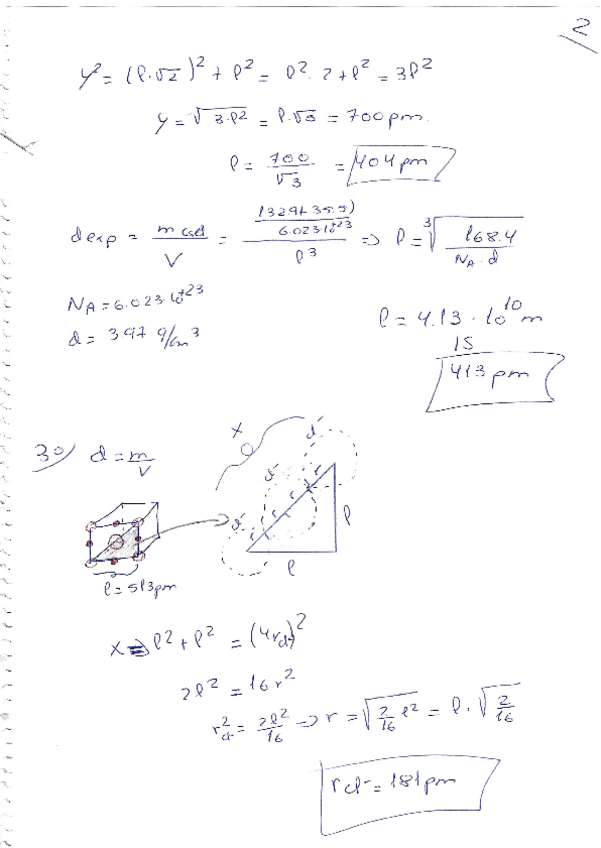 2
y² = (l·√2)² + l² = l²·2 + l² = 3l²
y = √3·l² = l·√3 = 700 pm.
l = 700/√3 = 404 pm
dexp = m CsCl / V = ((132.9+35.5) / 6.023·10^+23) / l³ => l = ³√(168.4 / NA·d)
NA = 6.023·10^+23
d = 3.97 g/cm³
l = 4.13 · 10^10 m
is
413 pm
30) d = m/V
x
l
l
l = 513 pm
x => l² + l² = (4rcl)²
2l² = 16 r²
r²cl = 2l²/16 => r = √(2/16 l²) = l · √(2/16)
rcl⁻ = 181 pm